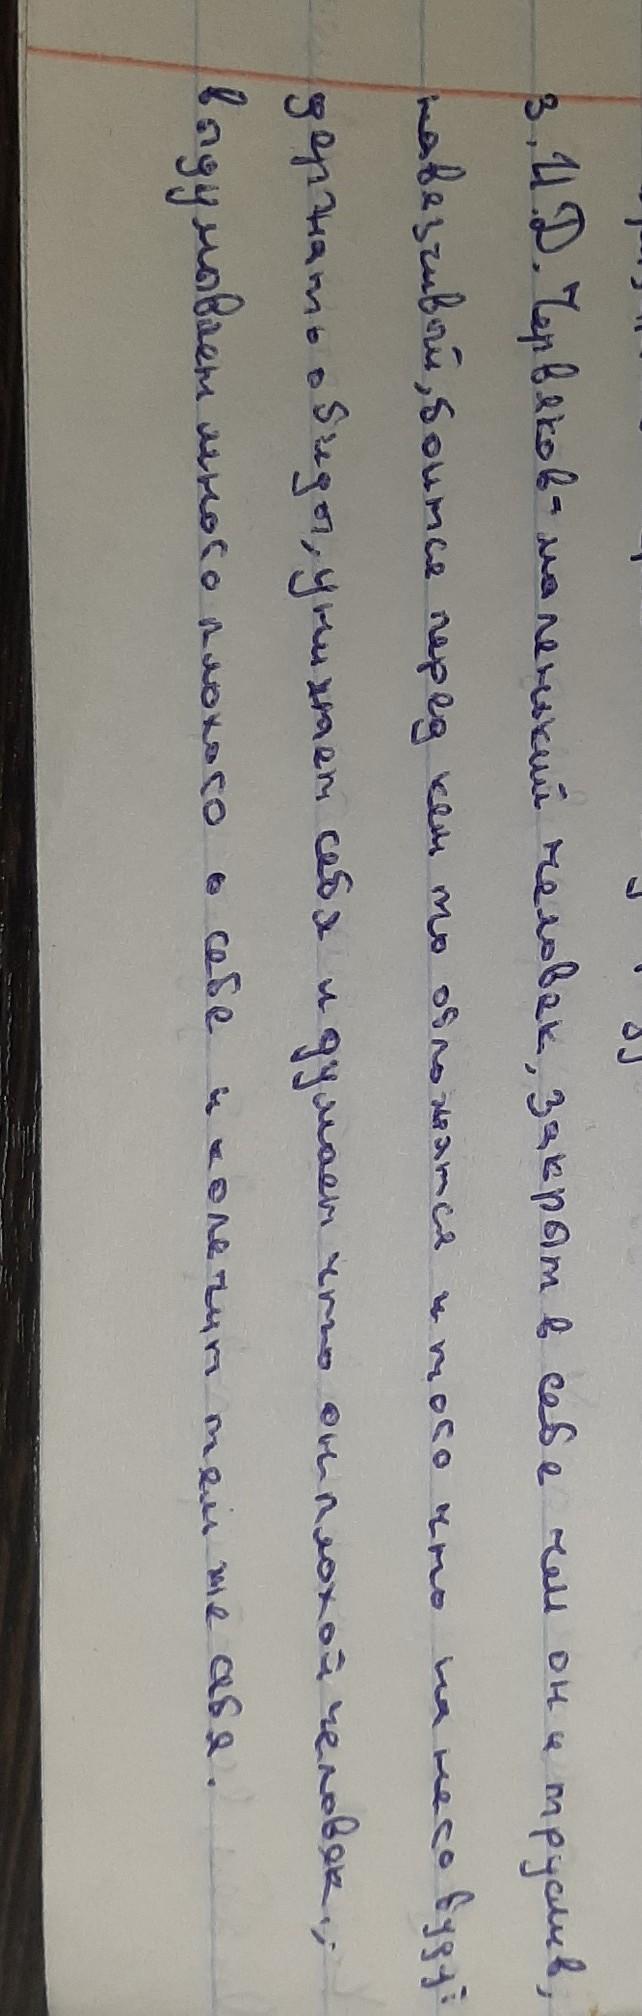 3. И.Д. Червяков - маленикий человек, закрыт в себе чем он и труслив,
навезчивый, боится перед кем то облажятся и того что на него будут
держать обиды, унижает себя и думает что он плохой человек,
выдумывает много плохого о себе и колечит тем же себя.